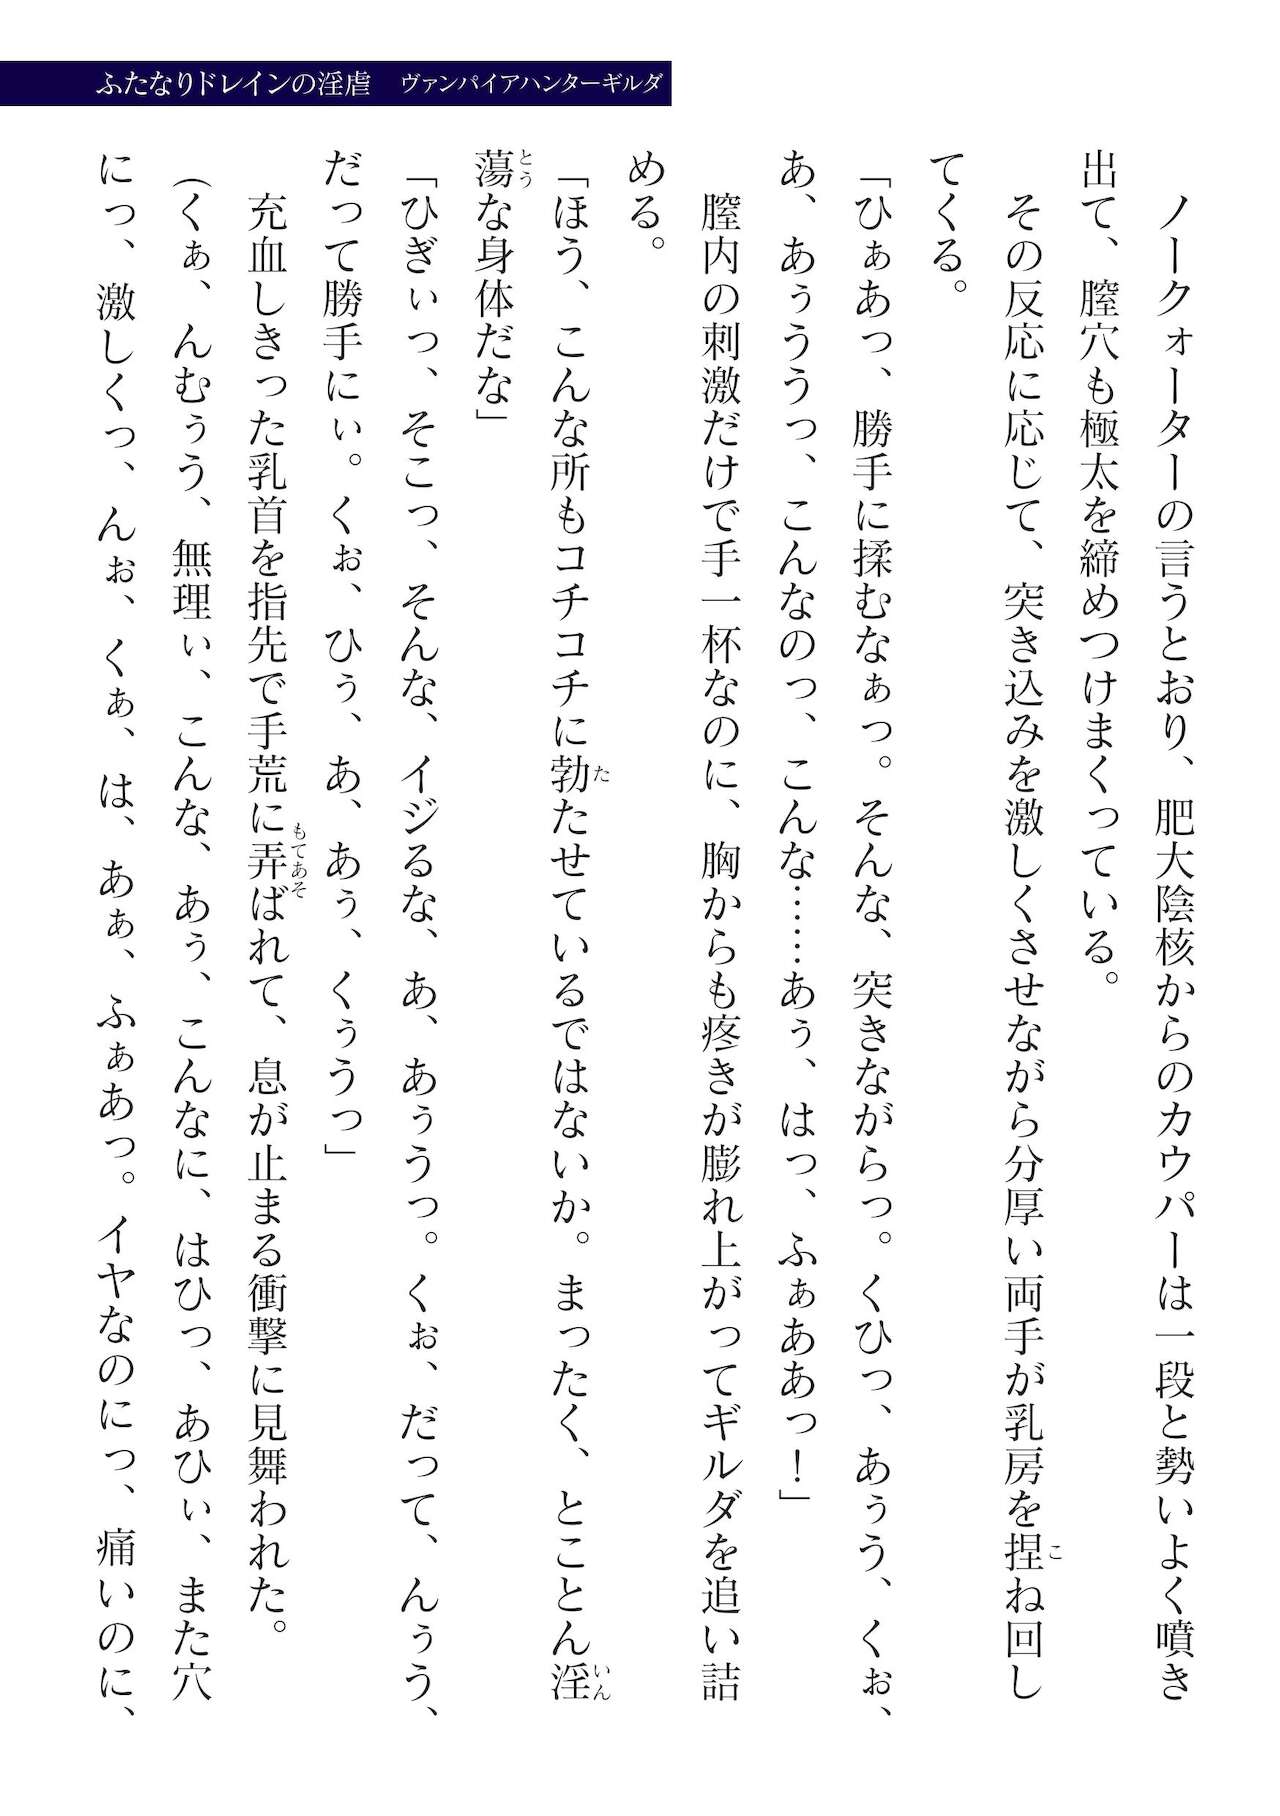 ふたなりドレインの淫虐　ヴァンパイアハンターギルダ
　ノークォーターの言うとおり、肥大陰核からのカウパーは一段と勢いよく噴き
出て、膣穴も極太を締めつけまくっている。
こ
　その反応に応じて、突き込みを激しくさせながら分厚い両手が乳房を捏ね回し
てくる。
「ひぁあっ、勝手に揉むなぁっ。そんな、突きながらっ。くひっ、あぅう、くぉ、
あ、あぅううっ、こんなのっ、こんな……あぅ、はっ、ふぁああっ！」
　膣内の刺激だけで手一杯なのに、胸からも疼きが膨れ上がってギルダを追い詰
める。
た　いん
「ほう、こんな所もコチコチに勃たせているではないか。まったく、とことん淫
とう
蕩な身体だな」
「ひぎぃっ、そこっ、そんな、イジるな、あ、あぅうっ。くぉ、だって、んぅう、
だって勝手にぃ。くぉ、ひぅ、あ、あぅ、くぅうっ」
もてあそ
　充血しきった乳首を指先で手荒に弄ばれて、息が止まる衝撃に見舞われた。
（くぁ、んむぅう、無理ぃ、こんな、あぅ、こんなに、はひっ、あひぃ、また穴
にっ、激しくっ、んぉ、くぁ、は、あぁ、ふぁあっ。イヤなのにっ、痛いのに、